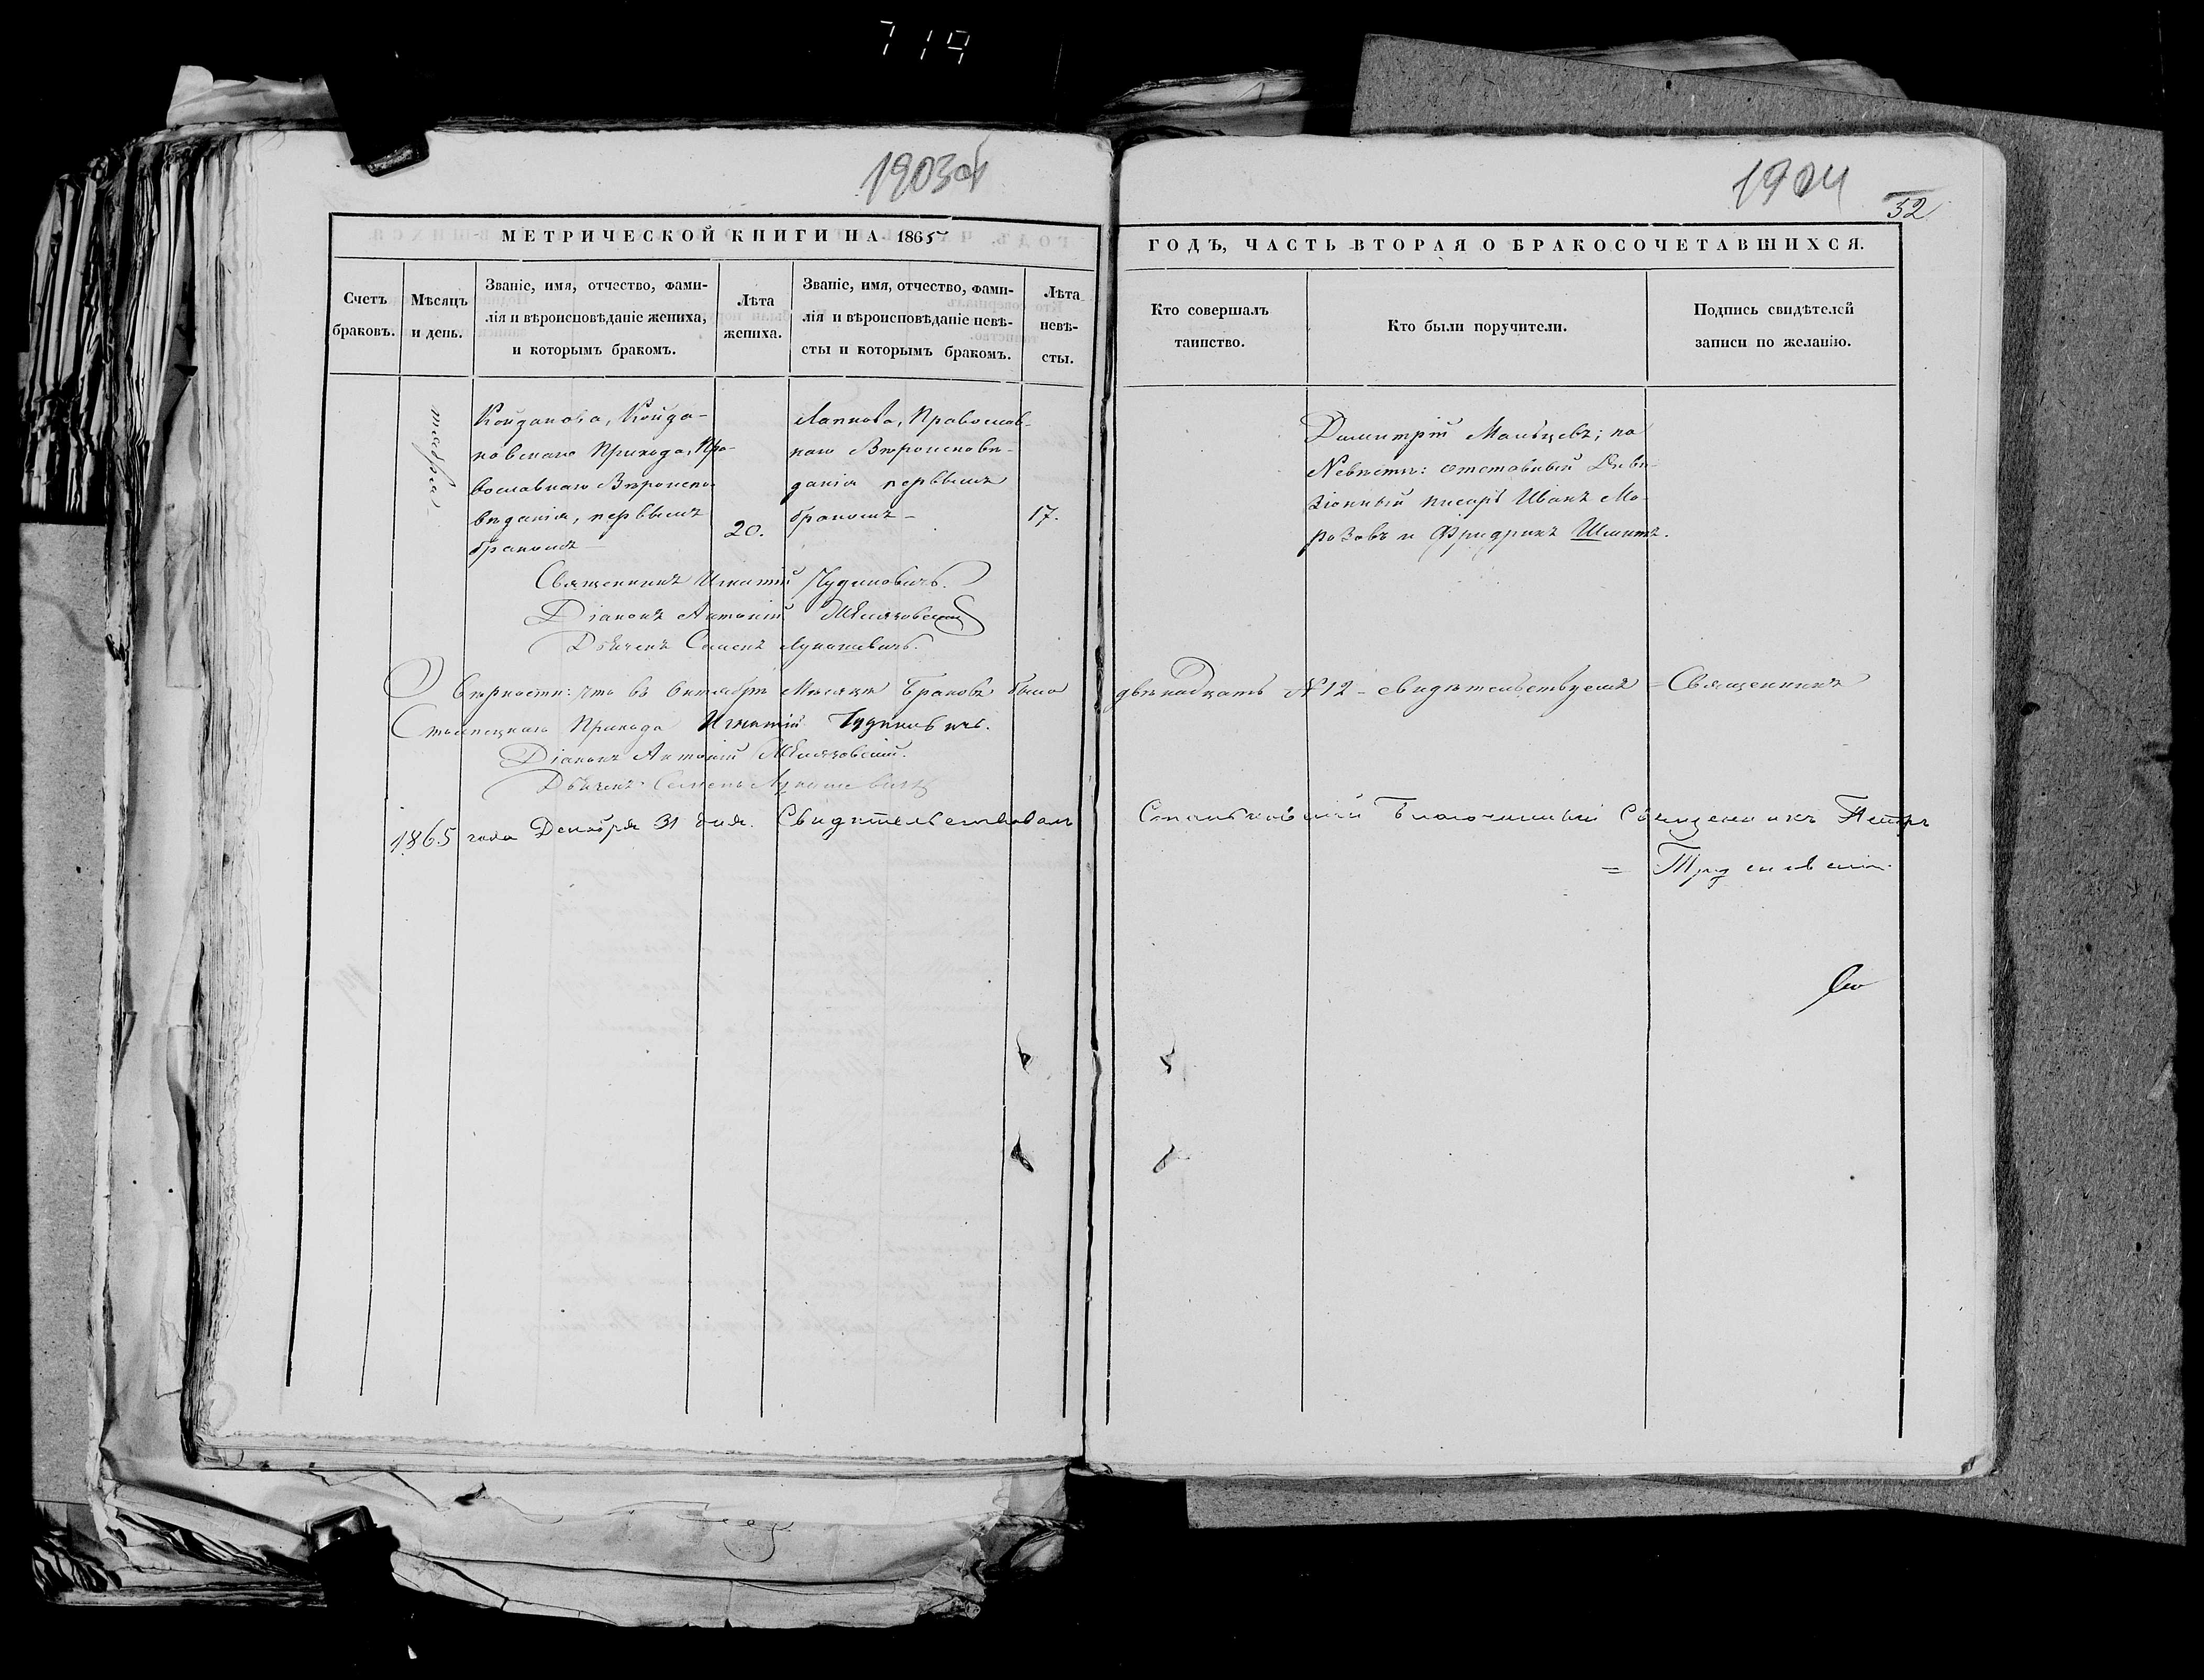 719
1903об
1904
52
МЕТРИЧЕСКОЙ КНИГИ НА 1865
ГОДЪ, ЧАСТЬ ВТОРАЯ О БРАКОСОЧЕТАВШИХСЯ.
Счетъ
браковъ.
Мѣсяцъ
и день.
Званіе, имя, отчество, фами-
лія и вѣроисповѣданіе жениха,
и которымъ бракомъ.
Лѣта
жениха.
Званіе, имя, отчество, фами-
лія и вѣроисповѣданіе невѣ-
сты и которымъ бракомъ.
Лѣта
невѣ-
сты.
Кто совершалъ
таинство.
Кто были поручители.
Подпись свидѣтелей
записи по желанію.
тября
Койданова, Койда-
новскаго Прихода, Пра-
вославнаго Вѣроиспо-
вѣданія, первымъ
бракомъ
20.
Православ-
наго Вѣроисповѣ-
данія первымъ
бракомъ
17.
Димитрій Мальцевъ; по
Невѣстѣ: отставный Диви-
зіонный писарь Иванъ Мо-
розовъ и Фридрихъ Шмитъ.
Священникъ Игнатій
Діаконъ Антоній
Дьячекъ Семенъ Лукашевичъ.
Вѣрности: что въ Октябрѣ Мѣсяцѣ Браковъ было
двѣнадцать №12 - свидѣтельствуемъ = Священникъ
Столпецкаго Прихода Игнатій
Діаконъ Антоній
Дьячекъ Семенъ Лукашевичъ
1865 года Декабря 31 дня. Свидѣтельствовалъ
Благочинный Священникъ Петръ